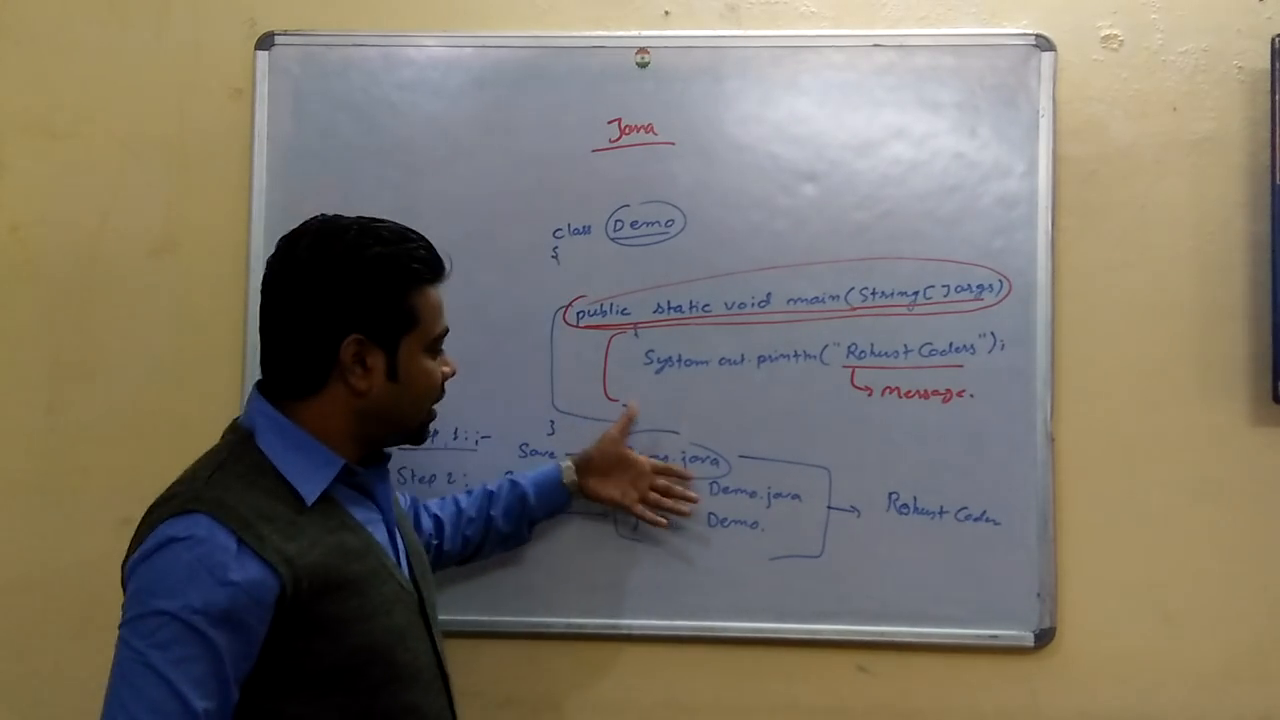 Java
class Demo
{
public static void main(String[]args)
{
System.out.println("Robust Coders");
Message.
}
Save .java
Step 2: Demo.java
Demo.
Robust Coder